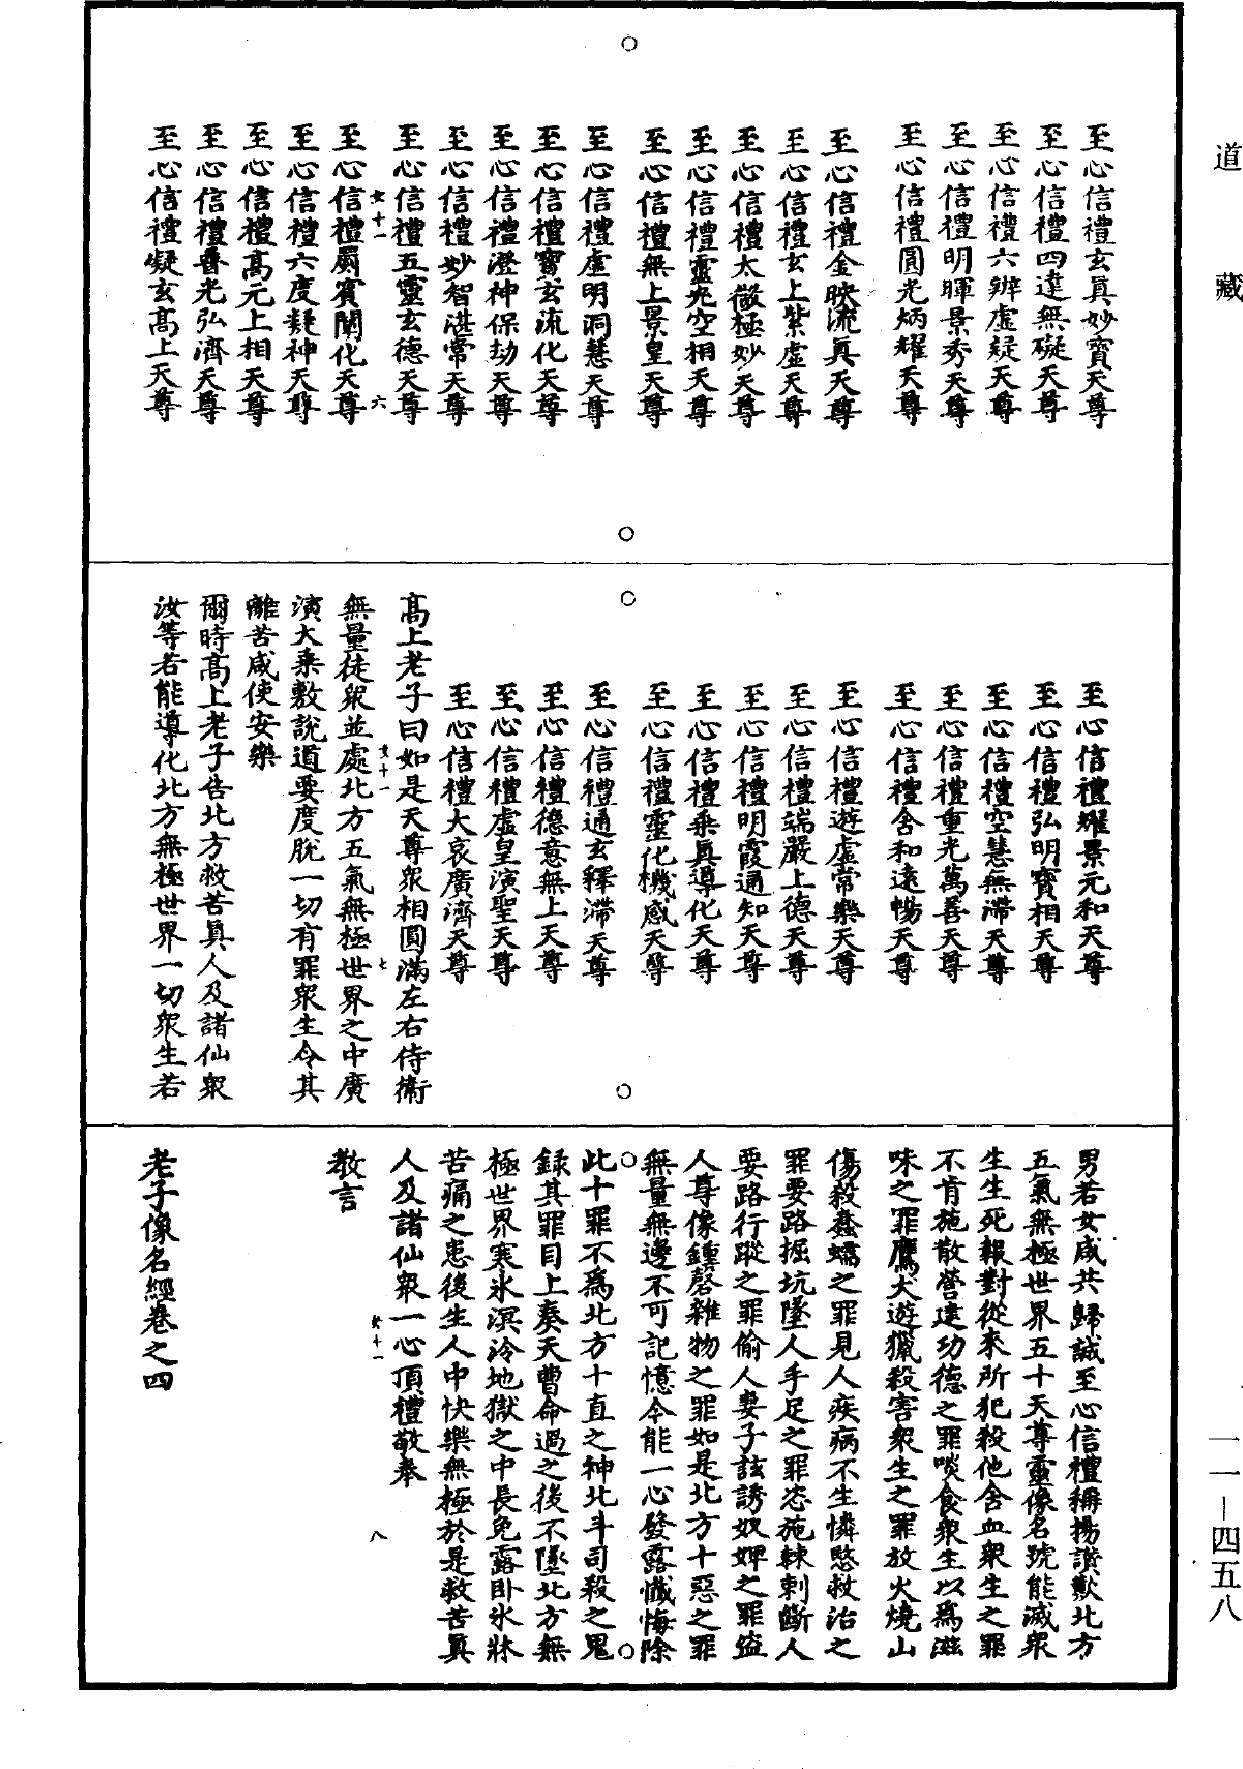 道藏
至心信禮玄真妙寶天尊
至心信禮四達無礙天尊
至心信禮六辨虛凝天尊
至心信禮明暉景秀天尊
至心信禮圓光炳耀天尊
至心信禮金映流真天尊
至心信禮玄上紫虛天尊
至心信禮太微極妙天尊
至心信禮靈光空相天尊
至心信禮無上景皇天尊
至心信禮虛明洞慧天尊
至心信禮寶玄流化天尊
至心信禮澄神保劫天尊
至心信禮妙智湛常天尊
至心信禮五靈玄德天尊
六
至心信禮罽賓闡化天尊
至心信禮六度凝神天尊
至心信禮高元上相天尊
至心信禮普光弘濟天尊
至心信禮凝玄高上天尊
至心信禮耀景元和天尊
至心信禮弘明寶相天尊
至心信禮空慧無滯天尊
至心信禮重光萬善天尊
至心信禮含和遠暢天尊
至心信禮遊虛常樂天尊
至心信禮端嚴上德天尊
至心信禮明霞通知天尊
至心信禮乘真導化天尊
至心信禮靈化機感天尊
至心信禮通玄釋滯天尊
至心信禮德意無上天尊
至心信禮虛皇演聖天尊
至心信禮大哀廣濟天尊
高上老子曰如是天尊衆相圓滿左右侍衛
七
無量徒衆並處北方五氣無極世界之中廣
演大乘敷說道要度脫一切有罪衆生令其
離苦咸使安樂
爾時高上老子告北方救苦真人及諸仙衆
汝等若能導化北方無極世界一切衆生若
男若女咸共歸誠至心信禮稱揚讚歎北方
五氣無極世界五十天尊靈像名號能滅衆
生生死報對從來所犯殺他含血衆生之罪
不肯施散營建功德之罪啖食衆生以爲滋
味之罪鷹犬遊獵殺害衆生之罪放火燒山
傷殺蠢蠕之罪見人疾病不生憐愍救治之
罪要路掘坑墜人手足之罪恣施棘刺斷人
要路行蹤之罪偷人妻子該誘奴婢之罪盜
人尊像鍾磬雜物之罪如是北方十惡之罪
無量無邊不可記憶今能一心發露懺悔除
此十罪不爲北方十直之神北斗司殺之鬼
録其罪目上奏天曹命過之後不墜北方無
極世界寒氷溟泠地獄之中長免露臥氷牀
苦痛之患後生人中快樂無極於是救苦真
人及諸仙衆一心頂禮敬奉
八
教言
老子像名經卷之四
一一—四五八